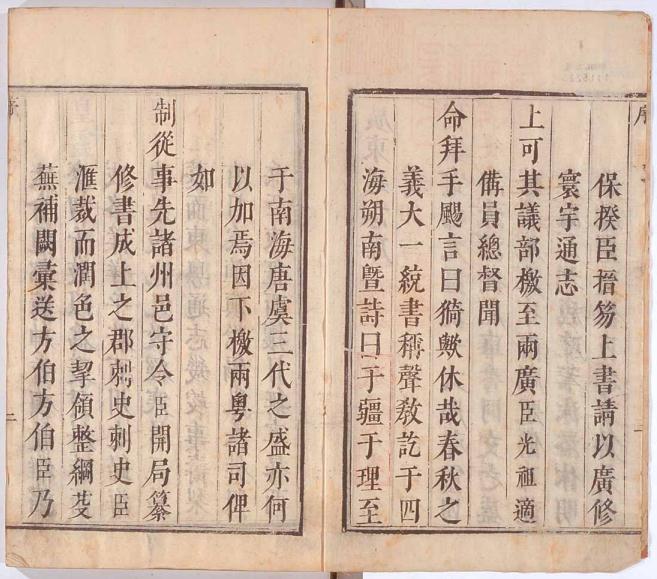 保揆臣搢笏上書請以廣修
寰宇通志
上可其議部檄至兩廣臣光祖適
備員總督聞
命拜手颺言曰猗歟休哉春秋之
義大一統書稱聲敎訖于四
海朔南曁詩曰于疆于理至
于南海唐虞三代之盛亦何
以加焉因下檄兩粤諸司俾
如
制從事先諸州邑守令臣開局纂
修書成上之郡刺史刺史臣
滙裁而潤色之挈領整綱芟
蕪補闕彙送方伯方伯臣乃
二